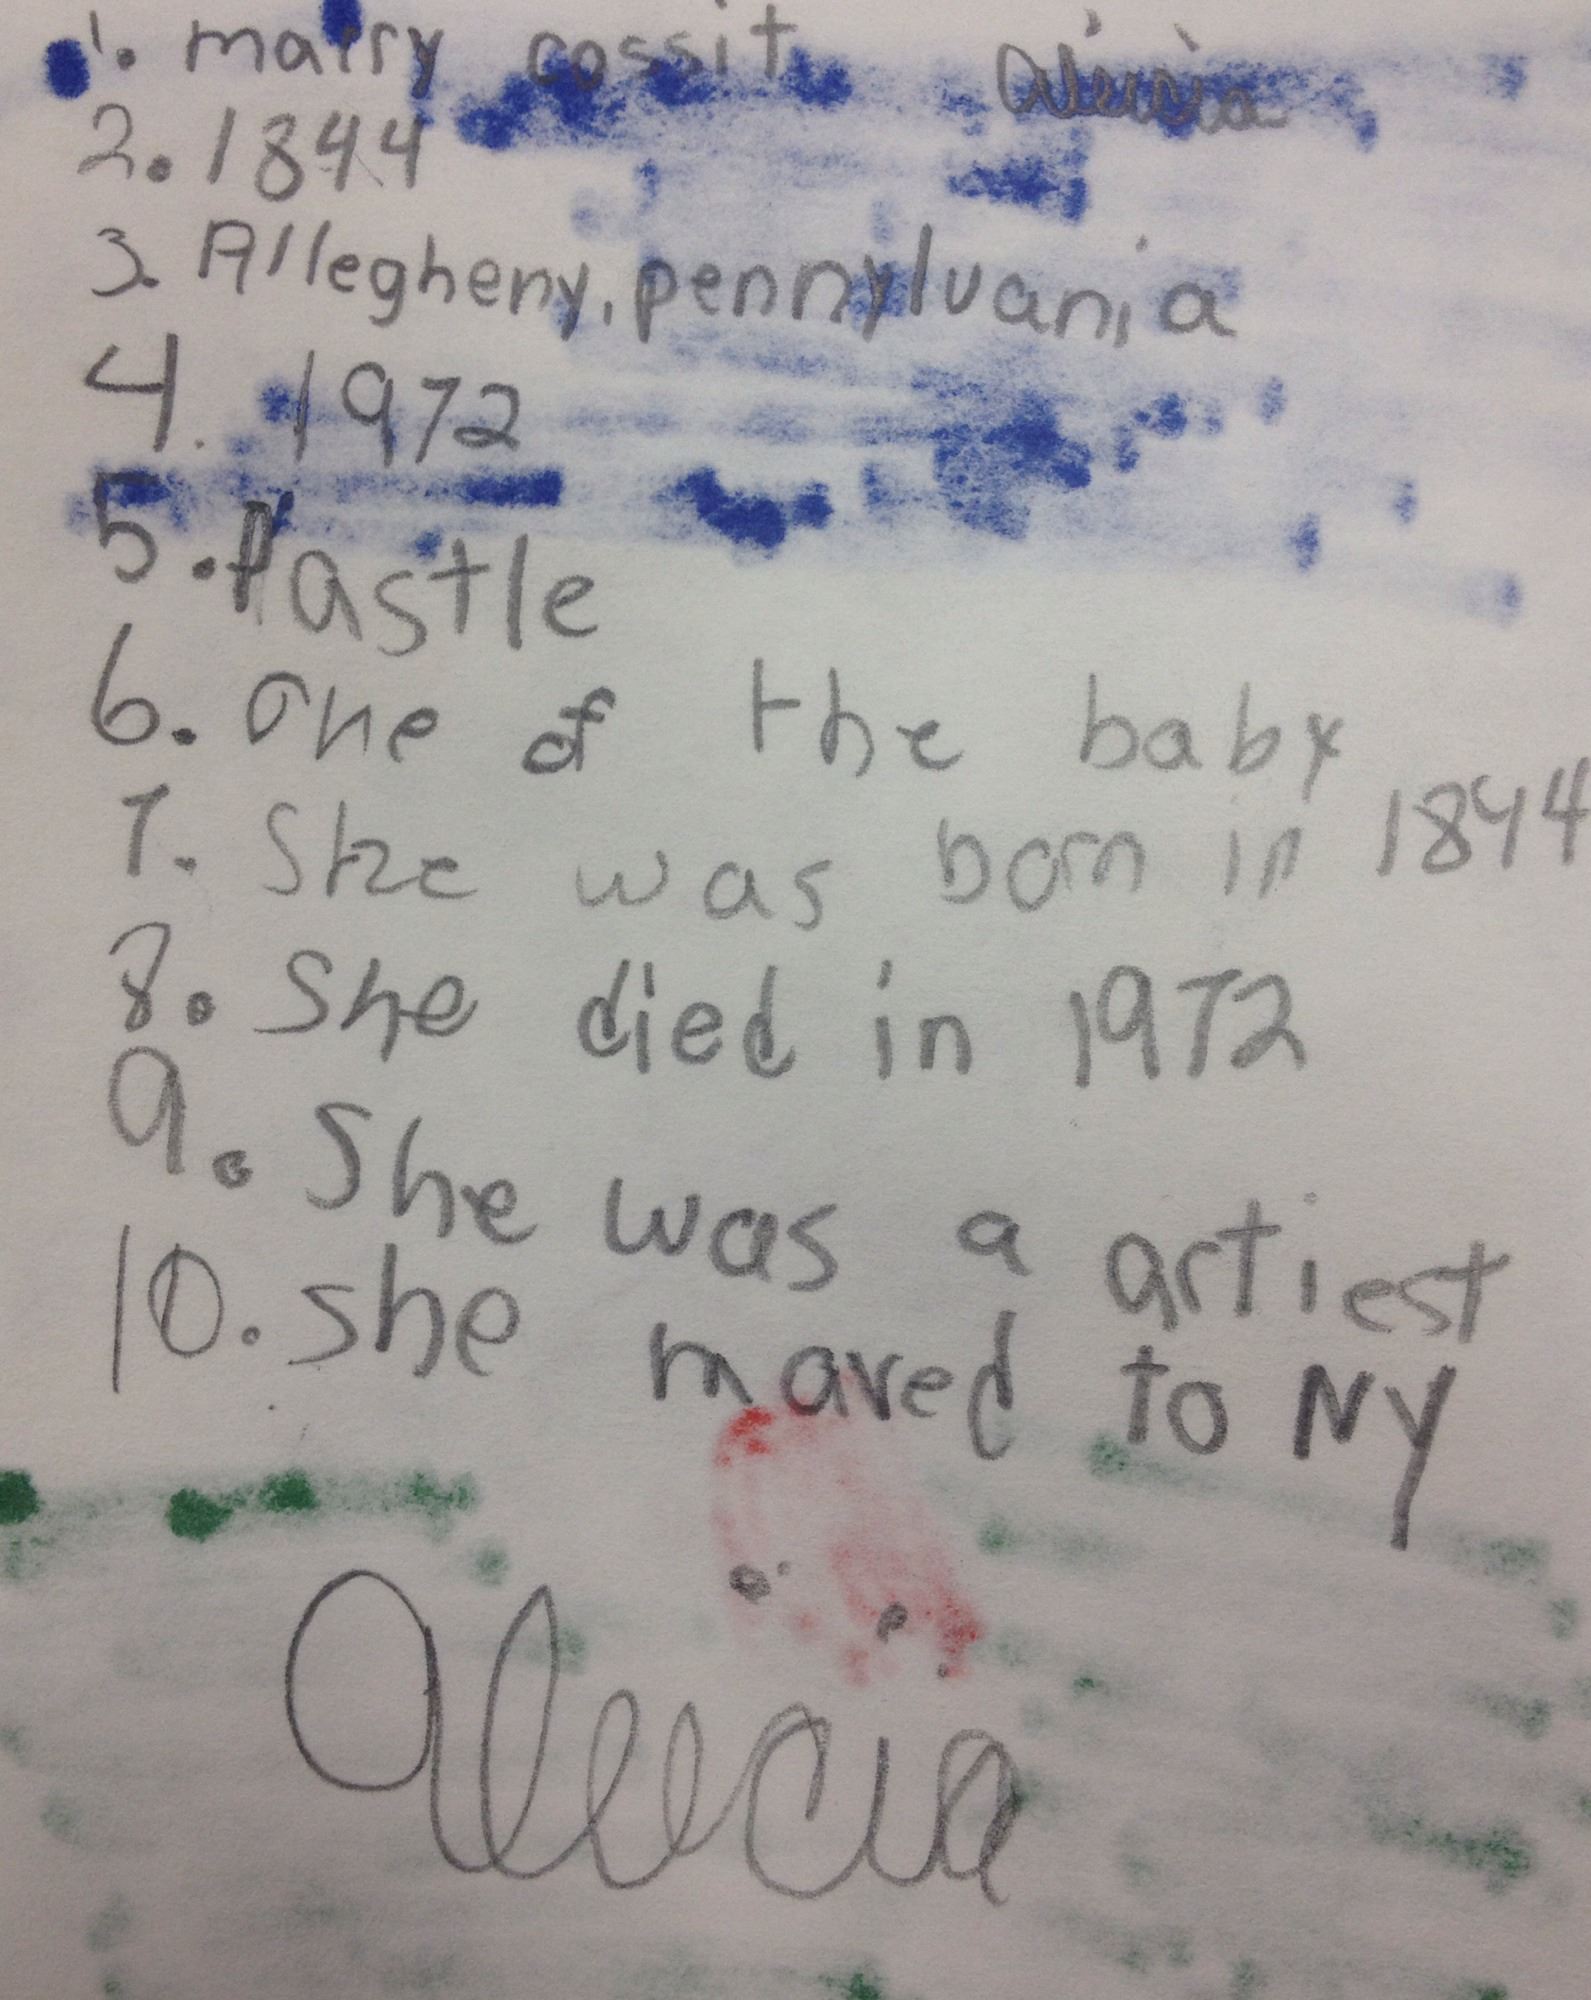 1. marry cossit alicia
2. 1844
3. Allegheny, pennylvania
4. 1972
5. Pastle
6. one of the baby
7. She was born in 1844
8. She died in 1972
9. She was a artiest
10. she moved to NY
alicia